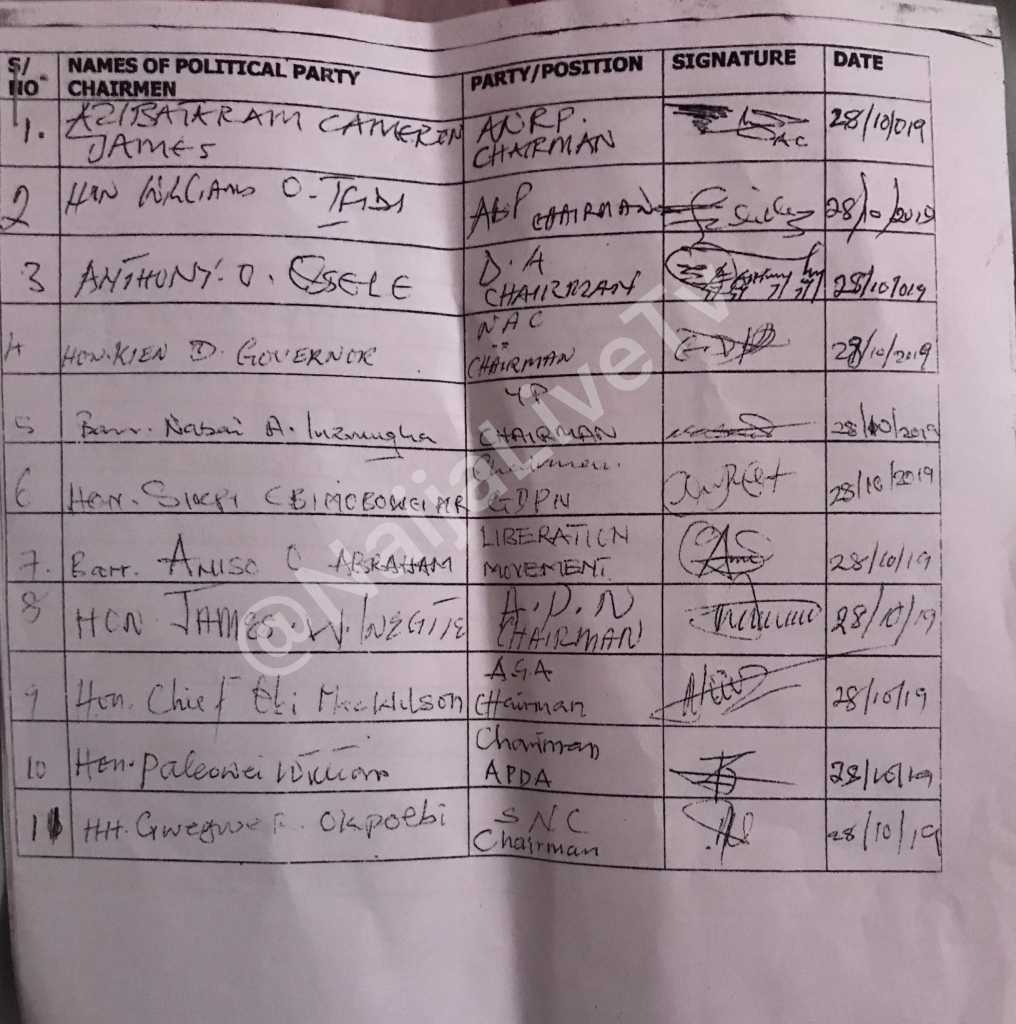 S/NO NAMES OF POLITICAL PARTY CHAIRMEN PARTY/POSITION SIGNATURE DATE
1. AZIBATARAM CAMERON ANRP. 28/10/019
JAMES CHAIRMAN
2 HON WILLIAMS O. ABP CHAIRMAN 28/10/2019
3 ANTHONY. O. D.A 28/10/019
CHAIRMAN
4 HON. KIEN D. GOVERNOR NAC 28/10/2019
CHAIRMAN
5 Barr. Nabai A. YP 28/10/2019
CHAIRMAN
6 Hon. Chairman. 28/10/2019
GDPN
7. Barr. ANISO O ABRAHAM LIBERATION MOVEMENT 28/10/19
8 HON JAMES. W. A.P.N 28/10/19
CHAIRMAN
9 Hon. Chief Ebi MacWilson AGA 28/10/19
Chairman
10 Hon. Paleowei William Chairman 28/10/19
APDA
11 HH. Okpoebi SNC 28/10/19
Chairman
@NaijaLiveTv